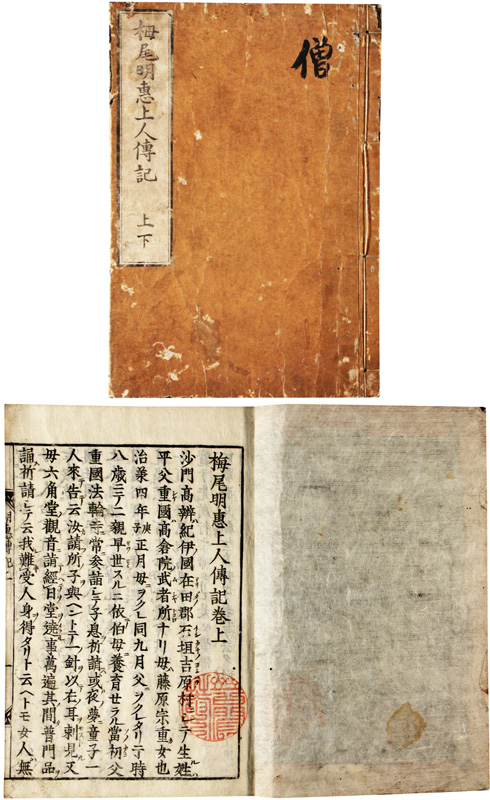 僧
栂尾明惠上人傳記 上下
栂尾明惠上人傳記卷上
沙門高辨紀伊國在田郡石垣吉原村ニテ生姓
平父重國高倉院武者所ナリ母藤原宗重女也
治承四年庚子正月母ヲクレ同九月父ヲクレタリ于時
八歳ニテ二親早世スルニ依伯母養育セラル當初父
重國法輪寺常参詣シテ子息祈請或夜夢童子一
人來告云汝請所子與ヘントテ一針以右耳刺見又
母六角堂觀音詣經日堂遶事萬遍其間普門品
誦祈請シテ云我難受人身得タリト云ヘトモ女人無